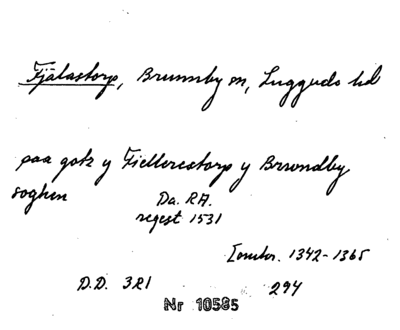 Fjälastorp, Brunnby sn, Luggude hd
paa gotz y Fiellerestorp y Brwndby
soghen
Da. RA.
regest 1531
[omkr. 1342-1365
D.D. 321
294
Nr 10585